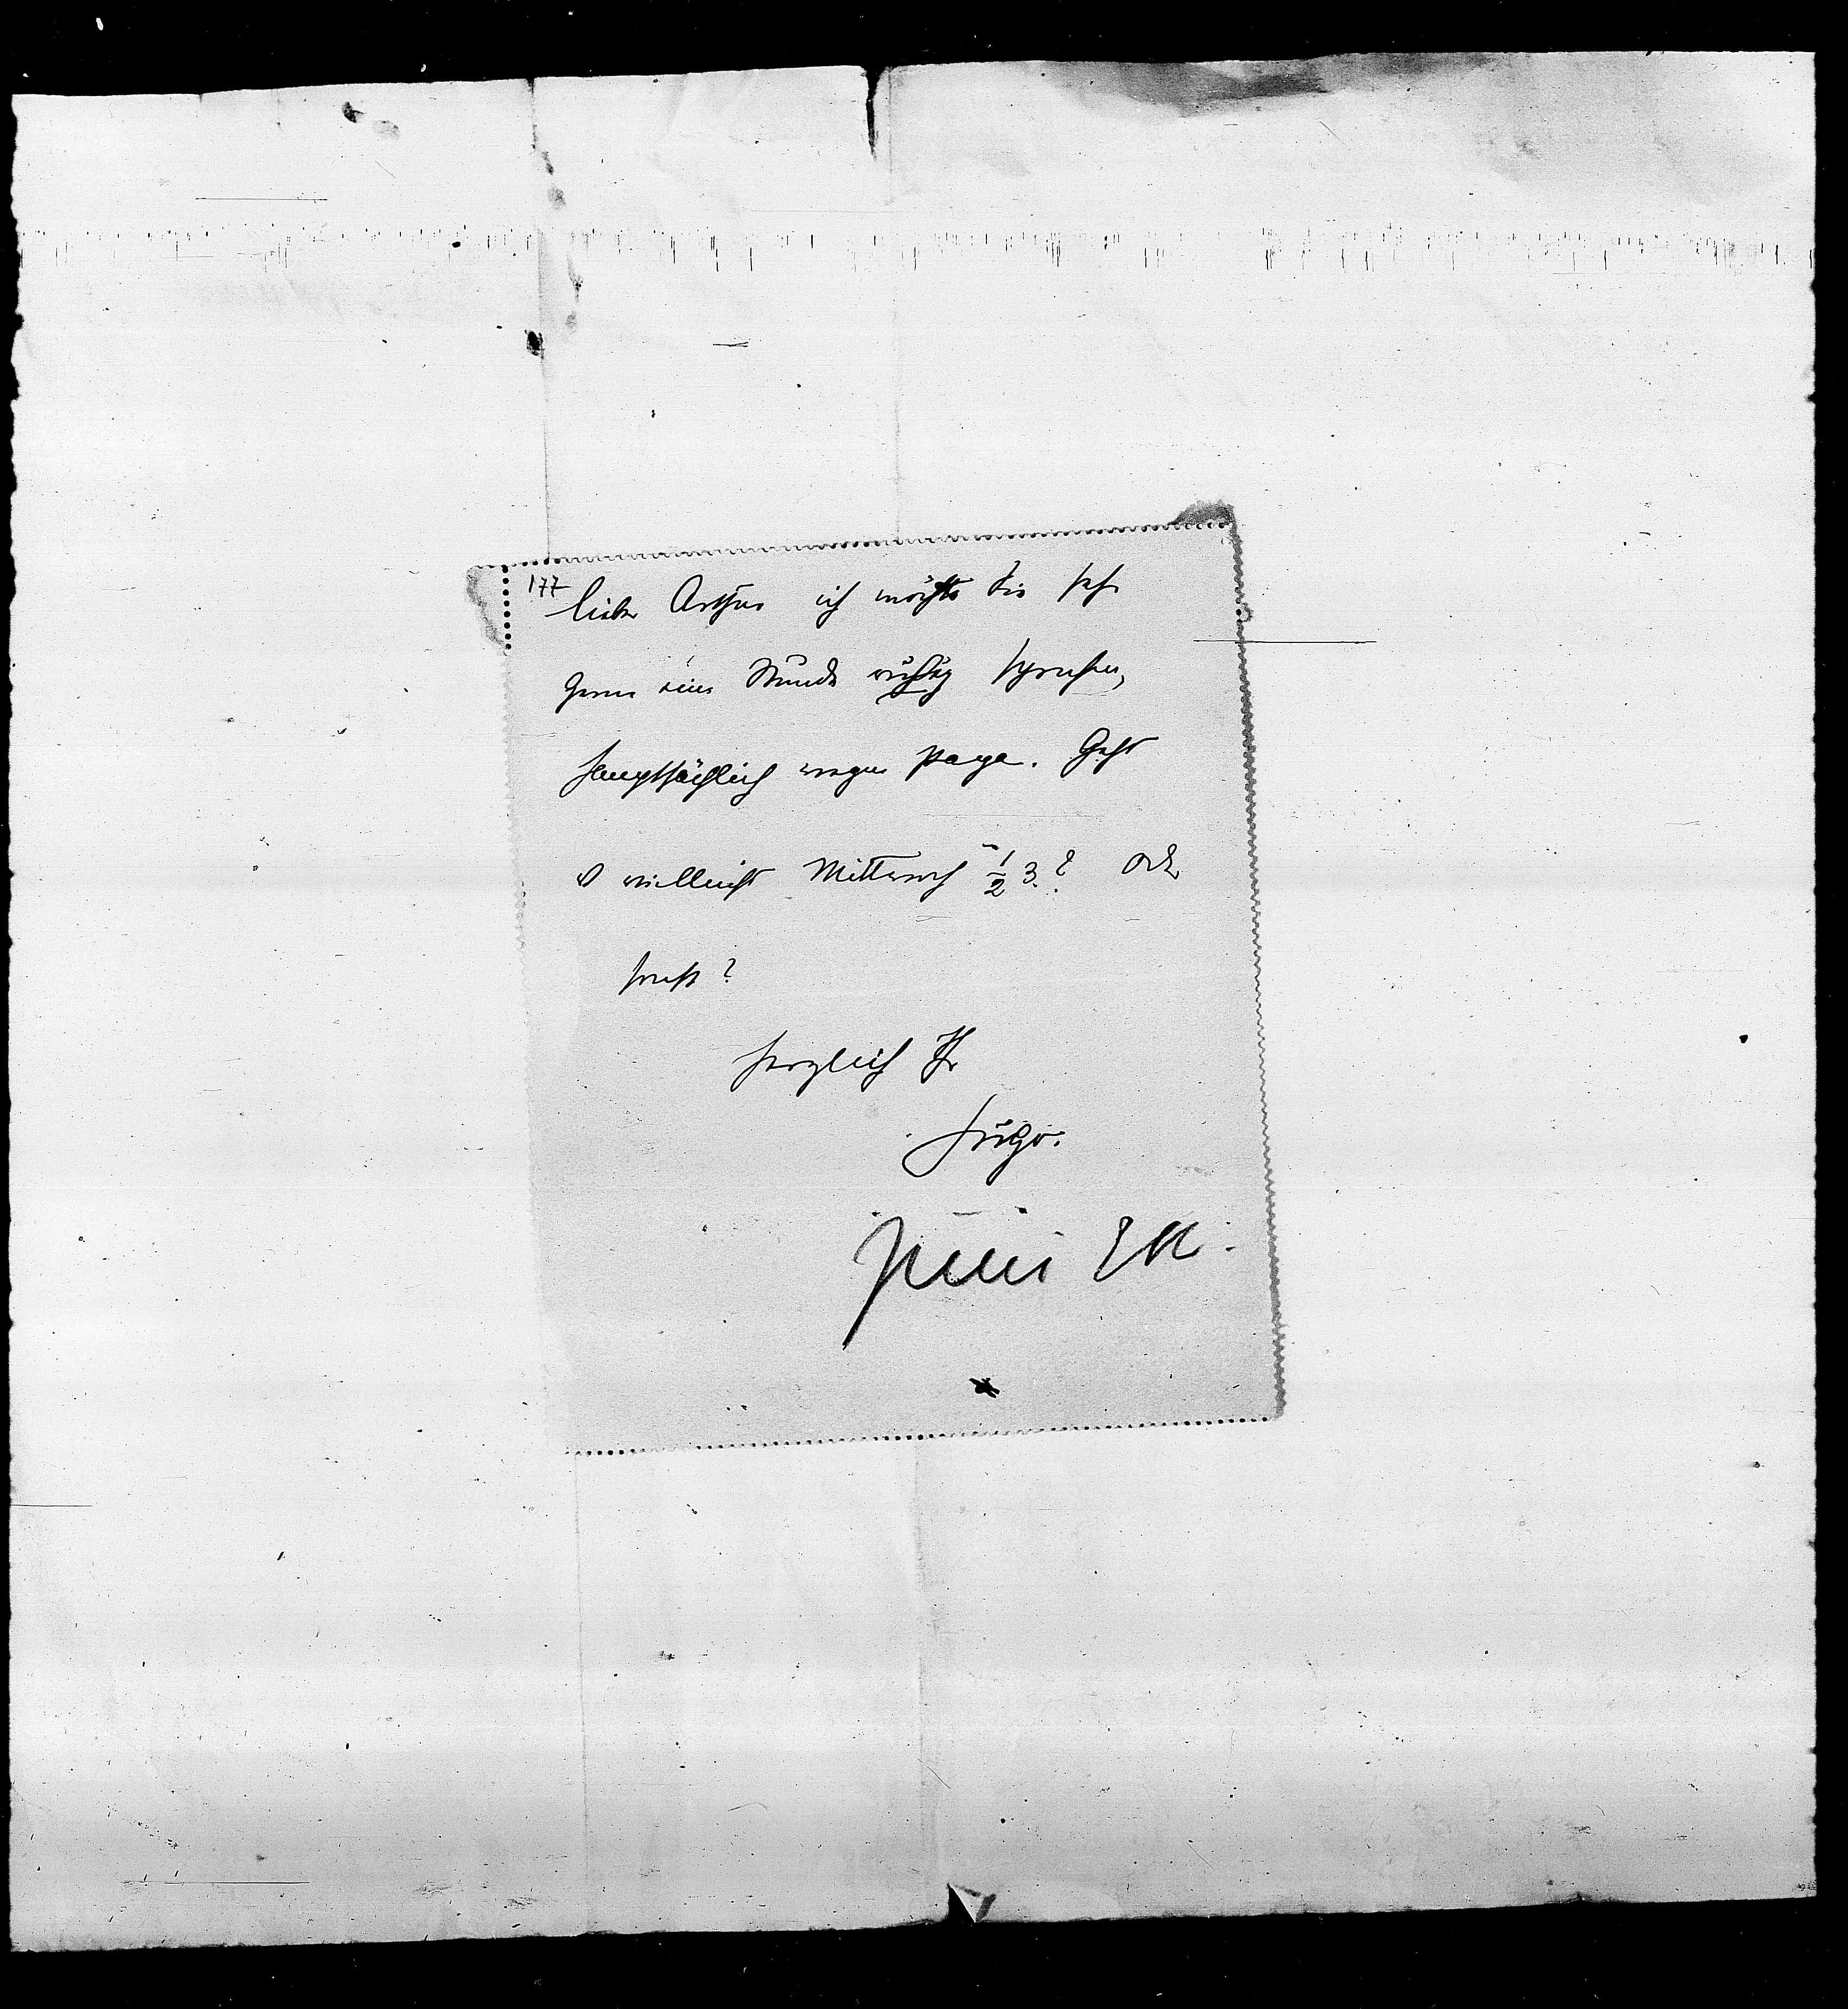 177
lieber Arthur ich möchte Sie sehr
gerne eine Stunde ruhig sprechen,
hauptsächlich wegen papa. Geht
es vielleicht Mittwoch ½ 3? oder
sonst?
herzlich Ihr
Hugo.
Juni